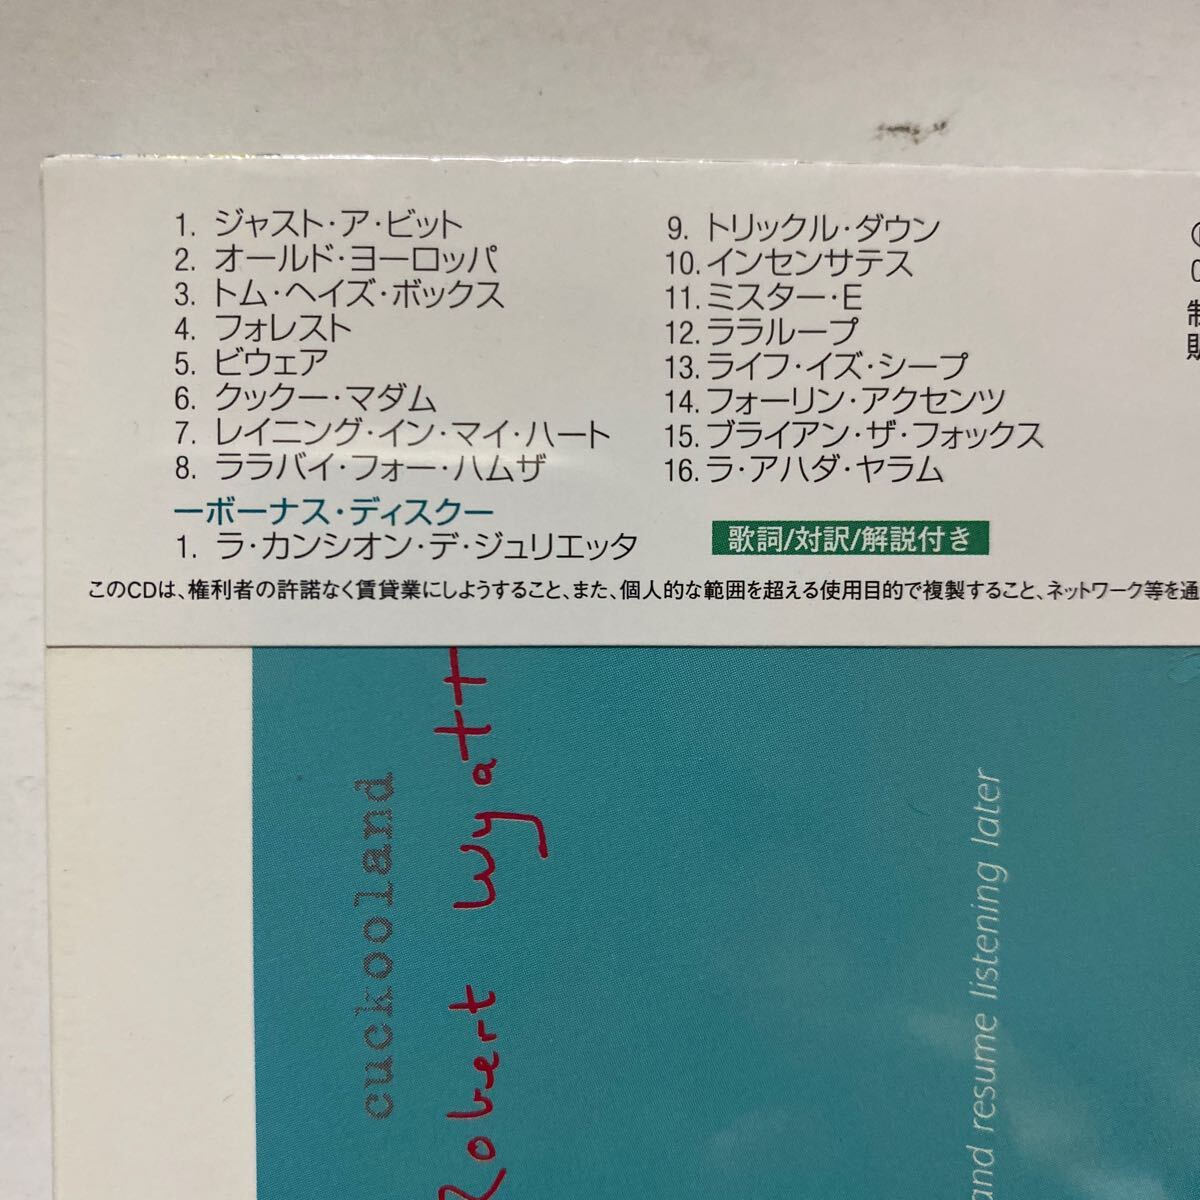 1. ジャスト・ア・ビット
2. オールド・ヨーロッパ
3. トム・ヘイズ・ボックス
4. フォレスト
5. ビウェア
6. クックー・マダム
7. レイニング・イン・マイ・ハート
8. ララバイ・フォー・ハムザ
ーボーナス・ディスクー
1. ラ・カンシオン・デ・ジュリエッタ
9. トリックル・ダウン
10. インセンサテス
11. ミスター・E
12. ララループ
13. ライフ・イズ・シープ
14. フォーリン・アクセンツ
15. ブライアン・ザ・フォックス
16. ラ・アハダ・ヤラム
歌詞/対訳/解説付き
制
販
このCDは、権利者の許諾なく賃貸業にしようすること、また、個人的な範囲を超える使用目的で複製すること、ネットワーク等を通
cuckooland
Robert Wyatt
and resume listening later